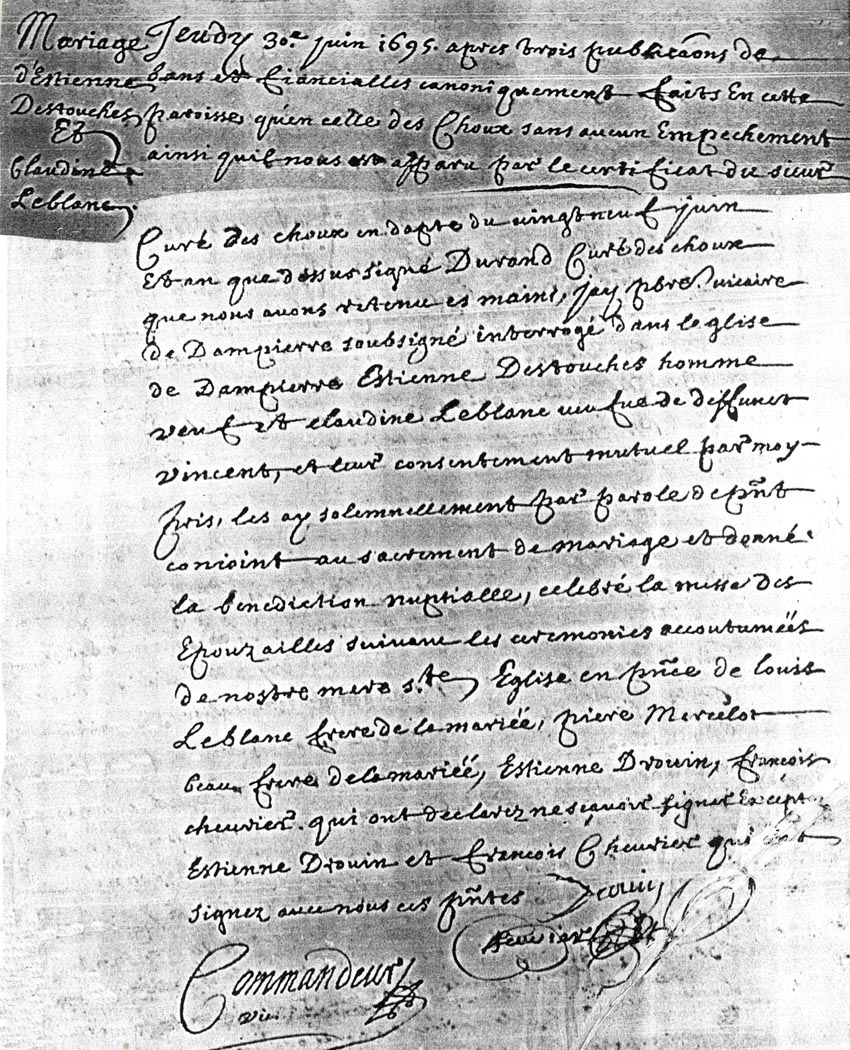 Mariage
d'Estienne
Destouches
Et
Claudine
Leblanc.
Jeudy 30.e juin 1695. apres trois publicaõns de
bans et fiancialles canoniquement faits En cette
paroisse qu'en celle des Choux sans aucun Empechement
ainsi quil nous apparu par le certificat du sieur
Curé des choux en dapte du vingt neuf juin
Et an que dessus signé Durand Curé des choux
que nous avons retenu es mains, jay pbre. vicaire
de Dampierre soubsigné interrogé dans leglise
de Dampierre Estienne Destouches homme
veuf et claudine Leblanc veufue de deffunct
vincent, et leur consentement mutuel par moy
pris, les ay solemnellement par parole de pñt
conioint au sacrement de mariage et donné
la benediction nuptialle, celebré la messe des
Epouzailles suivant les ceremonies accoutumées
de nostre mere s.te Eglise en pñce de louis
Leblanc frere de la mariéé, piere Marcelot
beau frere de la mariéé, Estienne Drouin, francois
cheurier. qui ont declarez ne scavoir signer Except
Estienne Drouin et francois Cheurier qui ont
signez avec nous ces pñtes Drouin
Cheurier
Commandeur
vic.